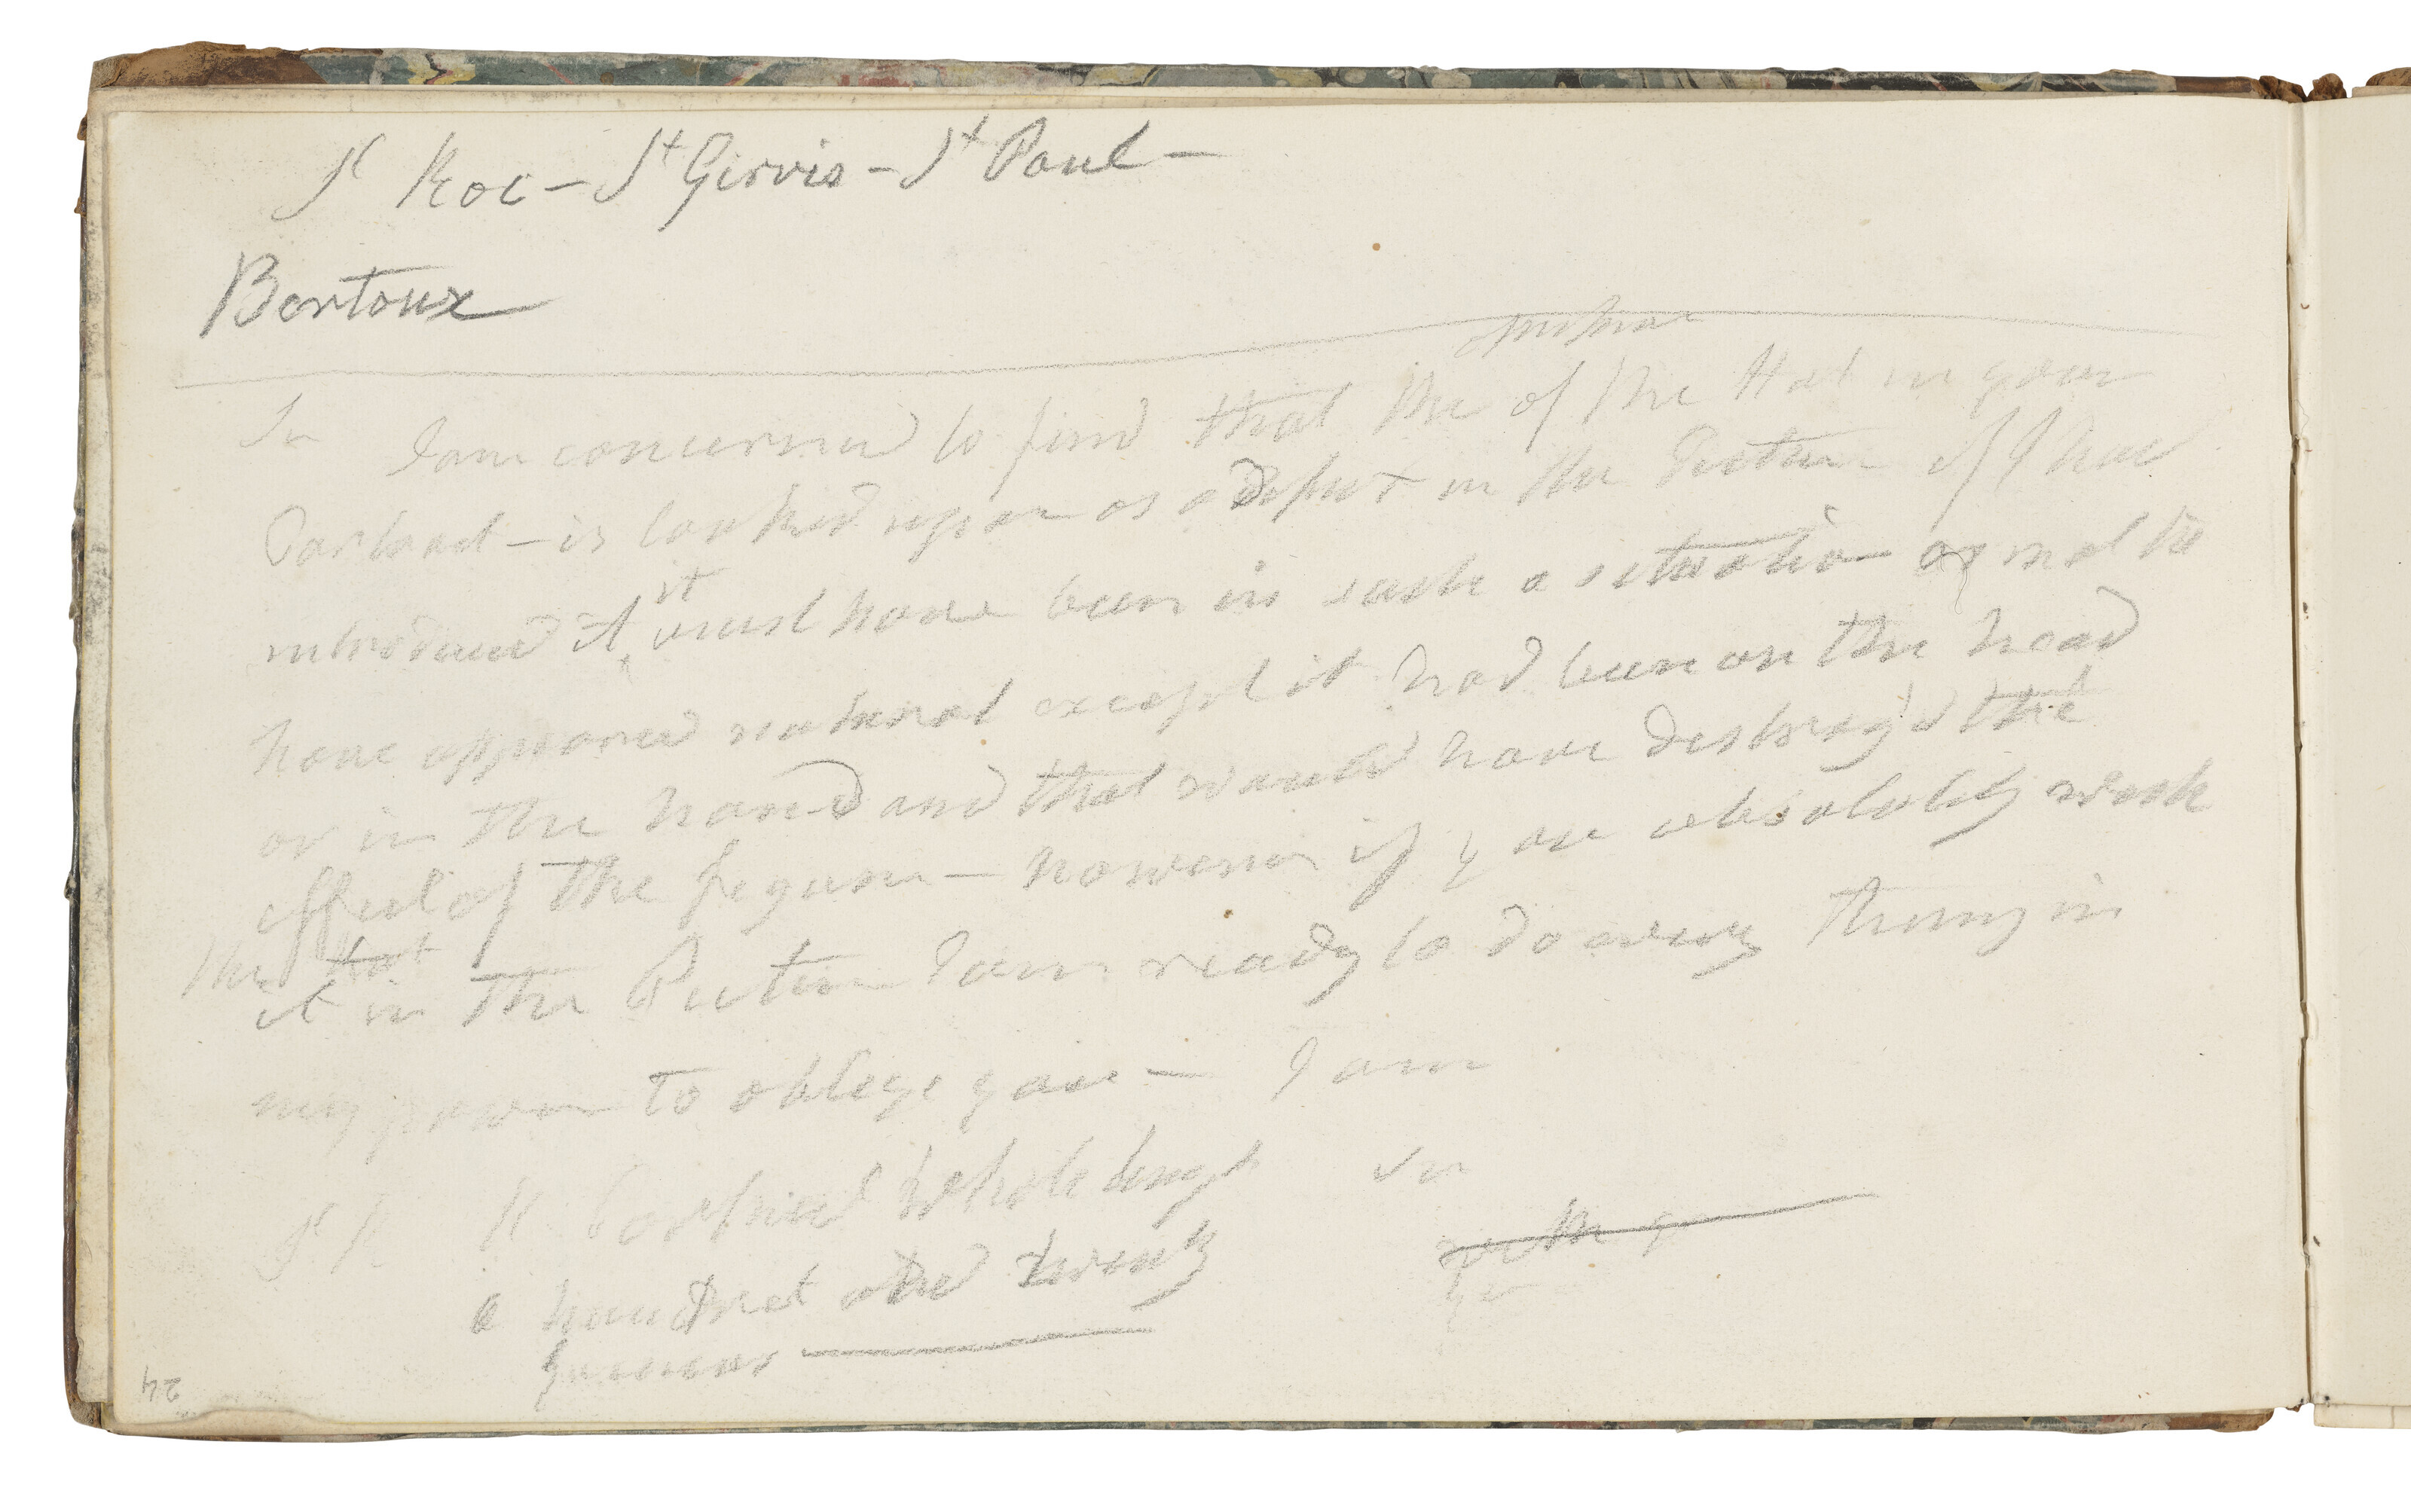 St Roc - St Gervis - St Paul -
Bertoux
Sir I am concerned to find that the of the Hat in your
Portrait - is looked upon as a defect in the Picture if I had
introduced it it must have been in such a situation as not to
have appeared natural except it had been on the head
or in the hand and that would have destroy'd the
effect of the figure - however if you absolutely wish
the Hat
it in the Picture I am ready to do every thing in
my power to oblege you - I am
Sir
whole length
a hundret and twenty
guineas
24